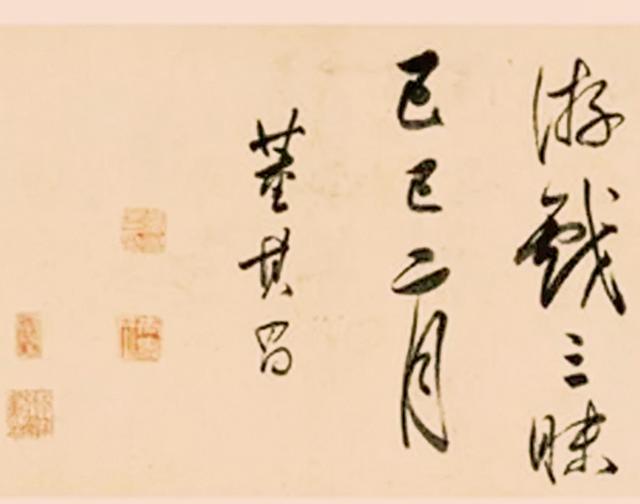 游戲三昧
己巳二月
董其昌